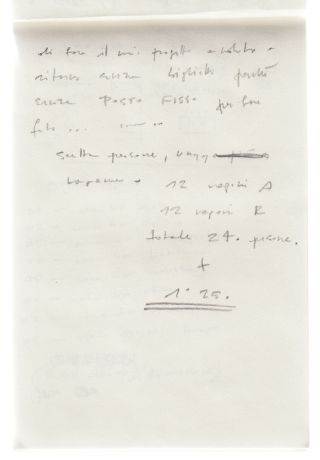 di fare il mio progetto andata e
ritorno senza biglietto perché
senza Posto Fisso per fare
foto ...
Scelta persone,
12 vagoni A
12 vagoni B
totale 24. persone.
+
1° 25.